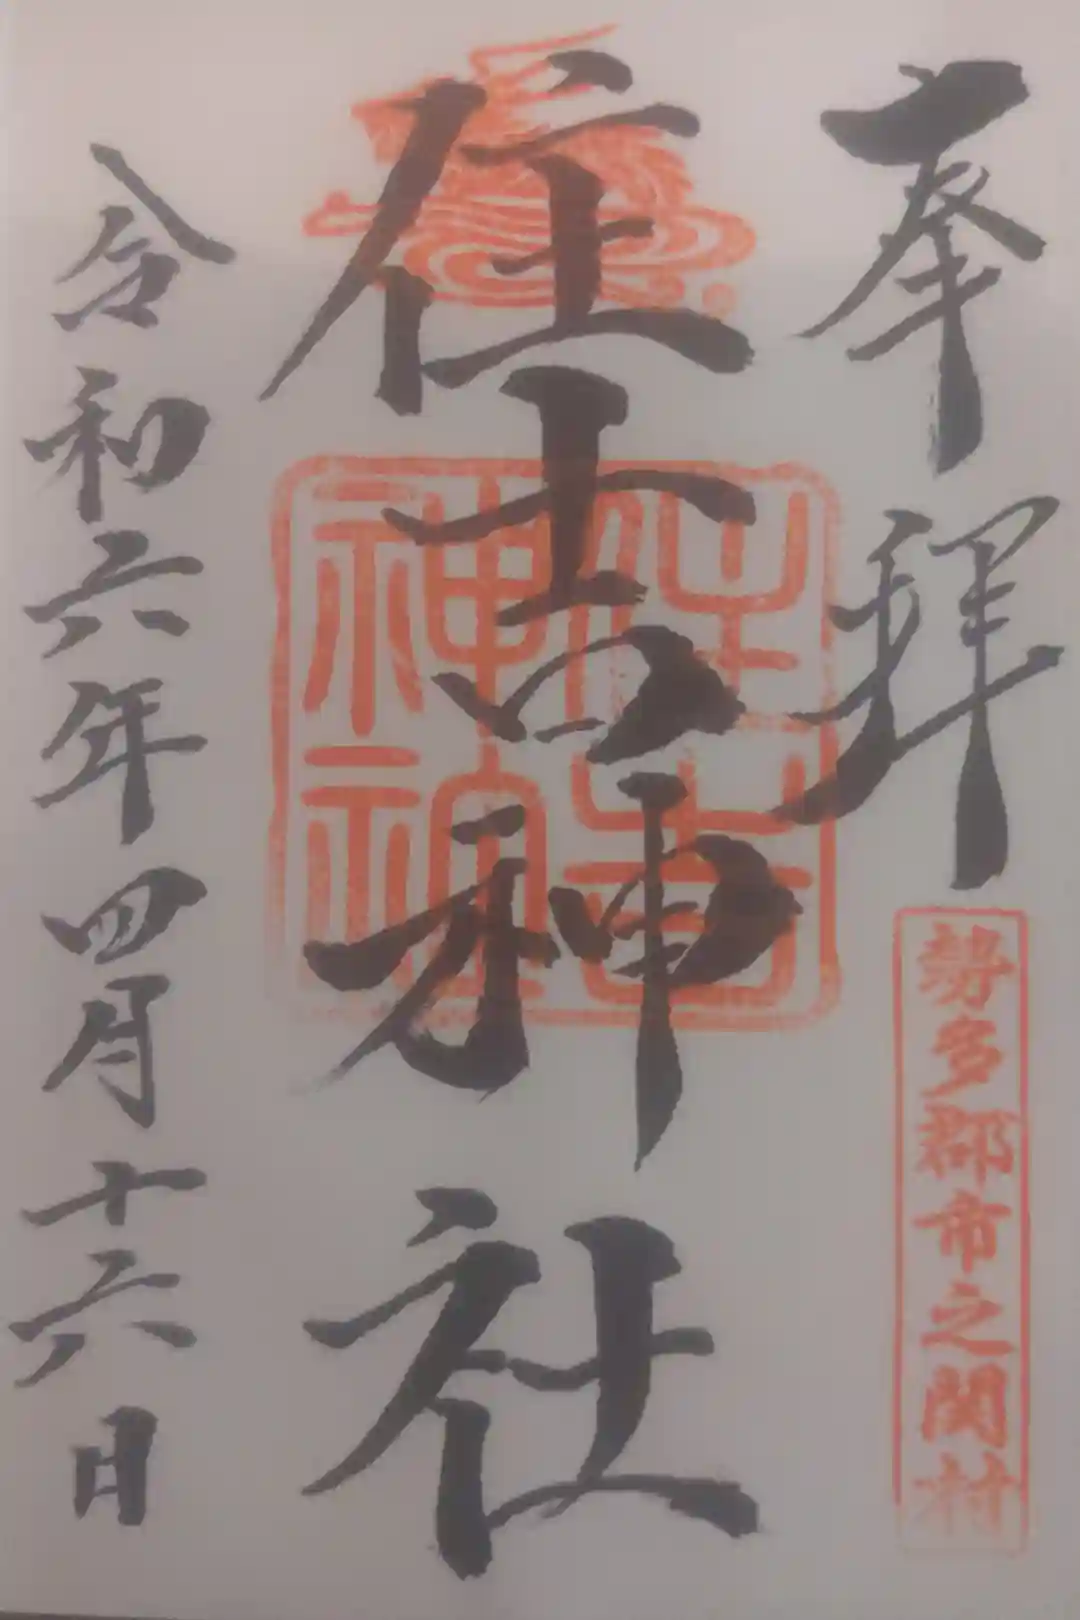 奉拝
勢多郡市之関村
住吉神社
住吉神社
令和六年四月十六日